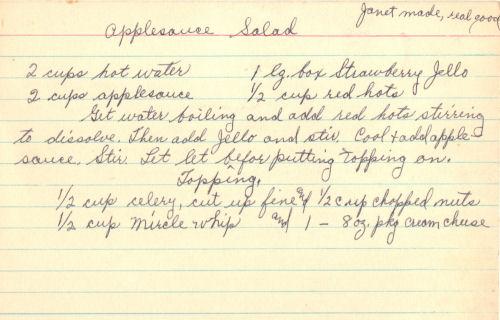 Janet made, real good
Applesauce Salad
2 cups hot water 1 lg. box Strawberry Jello
2 cups applesauce 1/2 cup red hots
Get water boiling and add red hots stirring
to dissolve. Then add Jello and stir. Cool + add apple-
sauce. Stir. Let let befor putting topping on.
Topping.
1/2 cup celery, cut up fine and 1/2 cup chopped nuts
1/2 cup Mircle whip and 1 - 8 oz. pkg cream cheese